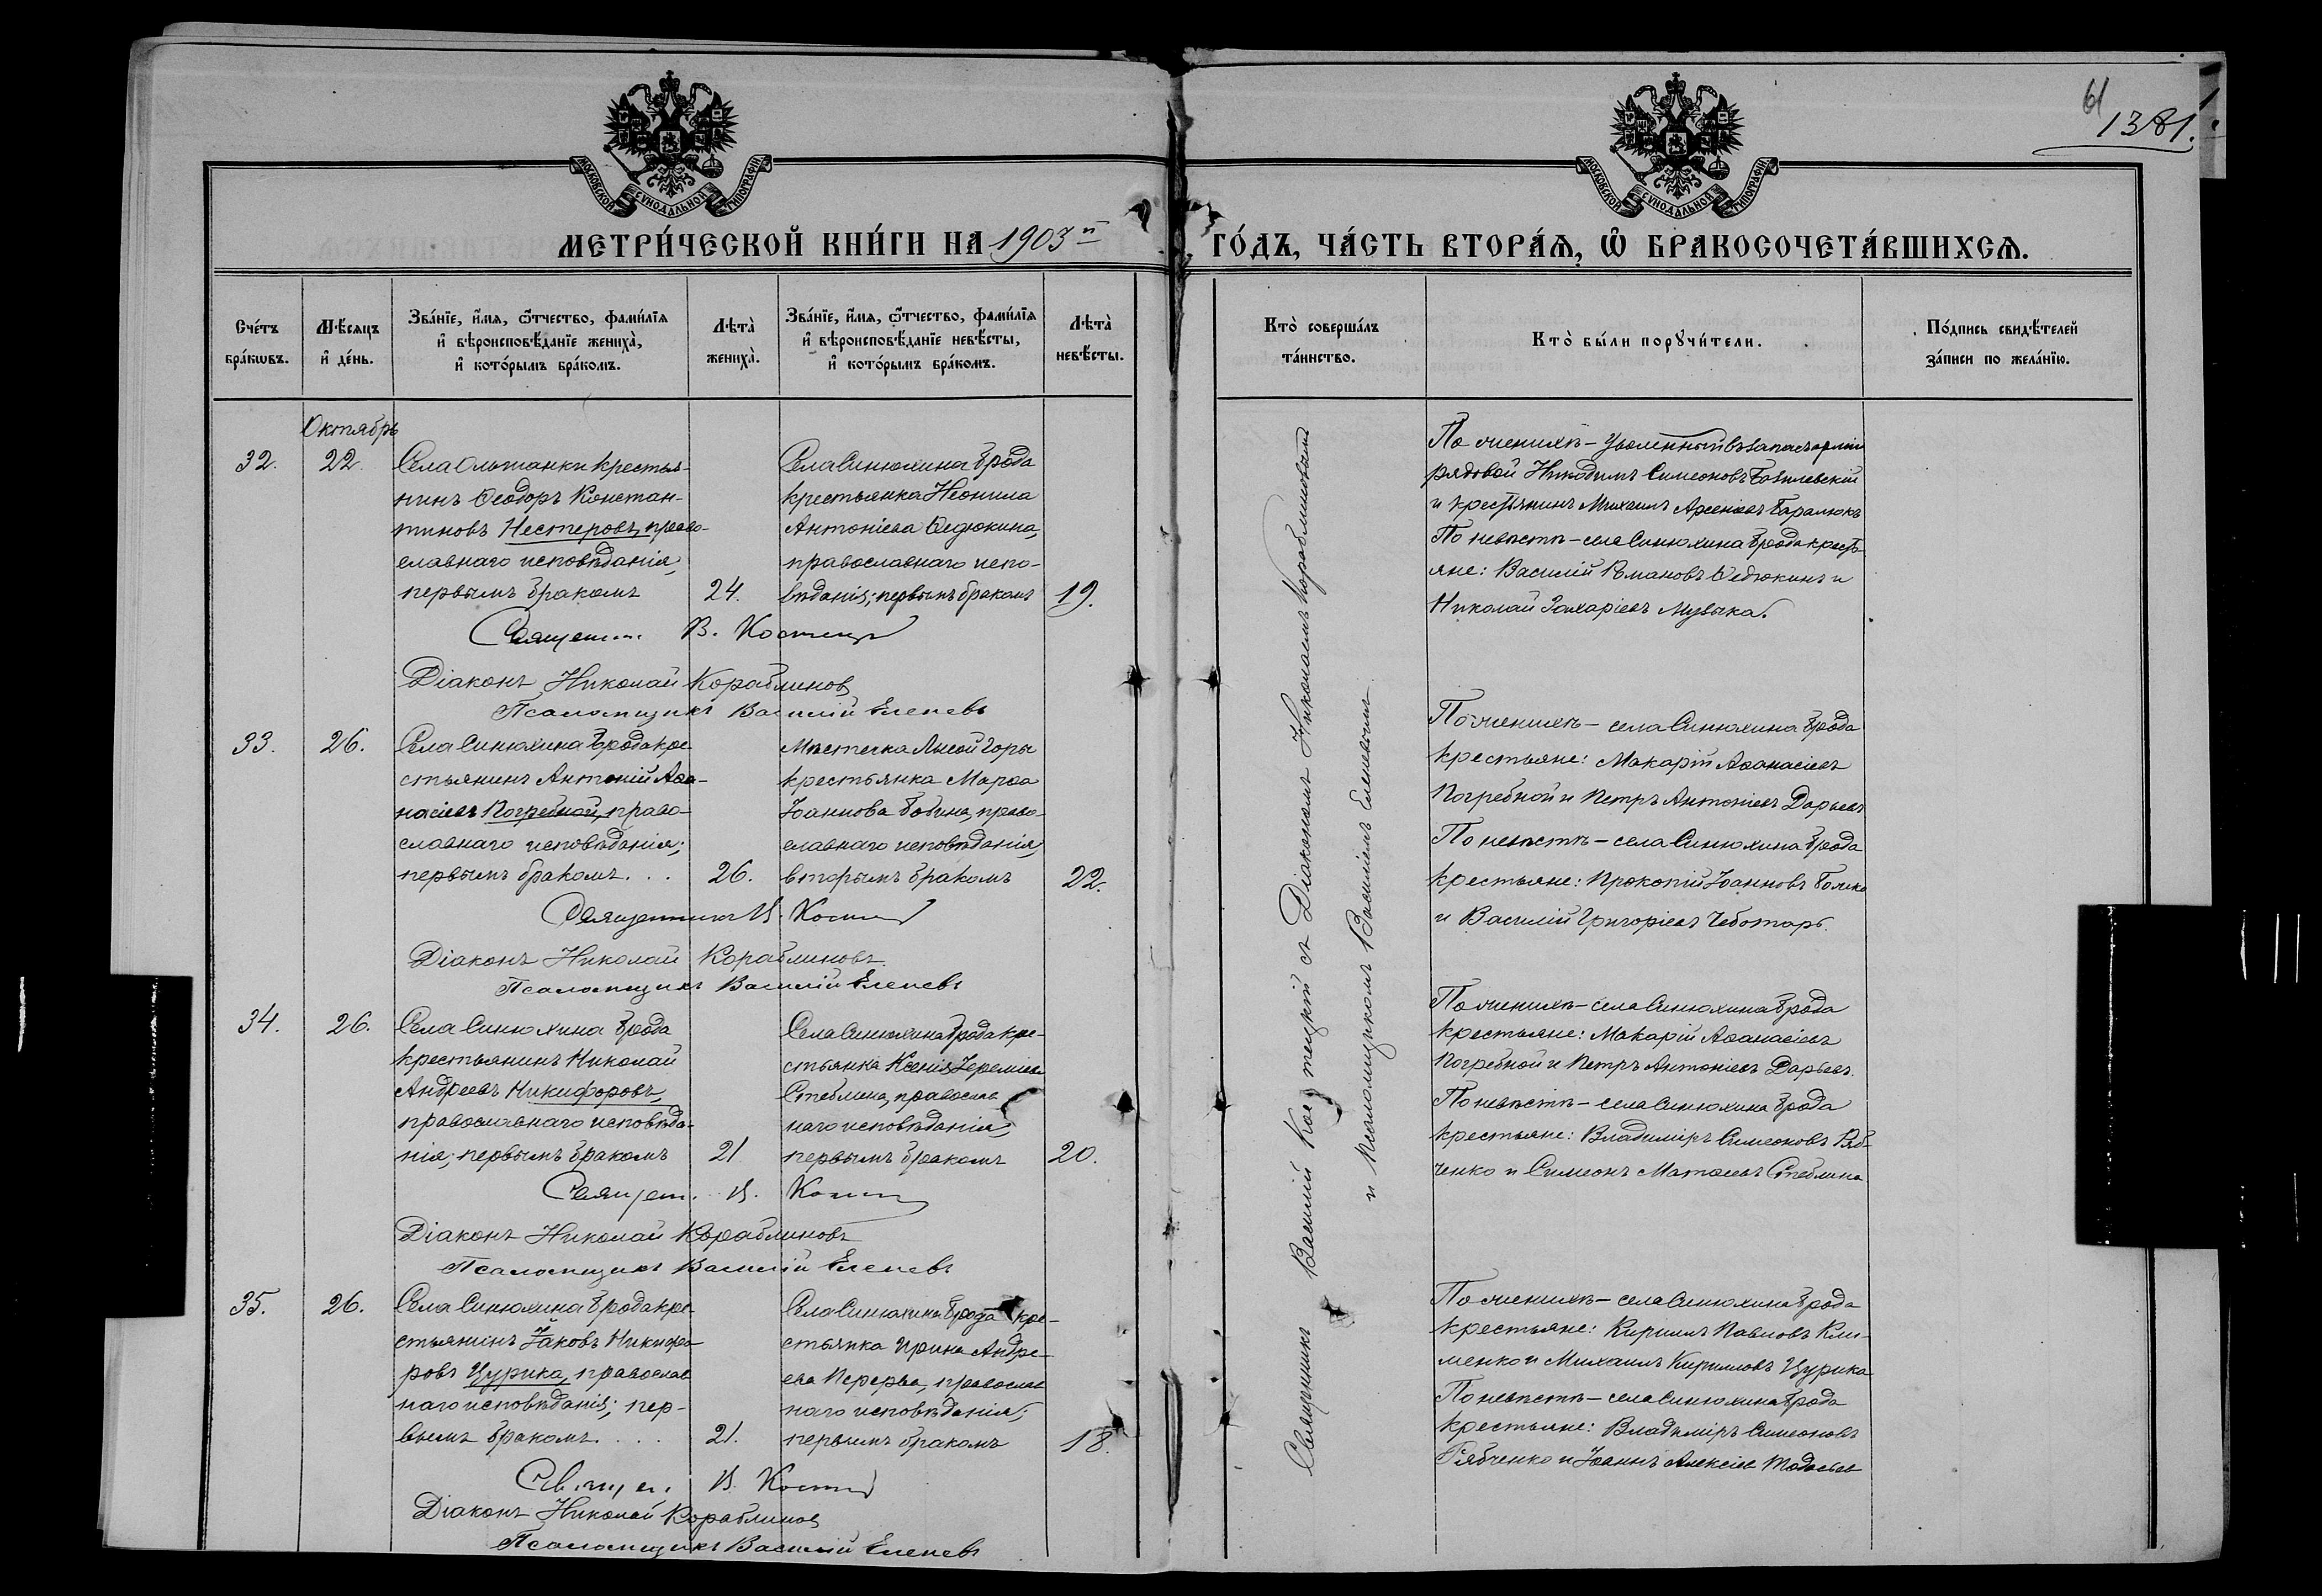 61
1381.
МОСКОВСКОЙ СѴНОДАЛЬНОЙ ТИПОГРАФІИ
МОСКОВСКОЙ СѴНОДАЛЬНОЙ ТИПОГРАФІИ
МЕТРИ́ЧЕСКОЙ КНИ́ГИ НА 1903й ГО́ДЪ, ЧА́СТЬ ВТОРА́Я, Ѡ БРАКОСОЧЕТА́ВШИХСЯ.
Сче́тъ бра́кѡвъ.
Мѣ́сяцъ и де́нь.
Зва́нїе, и́мя, ѻ́тчество, фами́лїя и вѣроисповѣ́данїе жениха̀, и кото́рымъ бра́комъ.
Лѣта̀ жениха̀.
Зва́нїе, и́мя, ѻ́тчество, фами́лїя и вѣроисповѣ́данїе невѣ́сты, и кото́рымъ бра́комъ.
Лѣта̀ невѣ́сты.
Кто̀ соверша́лъ та́инство.
Кто̀ бы́ли порꙋчи́тели.
По́дпись свидѣ́телей за́писи по жела́нїю.
Октябрь
32.
22.
Села Ольшанки крестья-
нинъ Ѳеодоръ Констан-
тиновъ Нестеровъ, право-
славнаго исповѣданія,
первымъ бракомъ
24.
Села Синюхина Брода
крестьянка Неонила
Антоніева Ѳедюкина,
православнаго испо-
вѣданія; первымъ бракомъ
19.
По женихѣ – уволенный въ запасъ арміи
рядовой Никодимъ Симеоновъ
и крестьянинъ Михаилъ Арсеніевъ
По невѣстѣ – села Синюхина Брода кресть-
яне: Василій Романовъ Ѳедюкинъ и
Николай Захаріевъ Музыка.
Священ. В.
Діаконъ Николай Кораблиновъ
Псаломщикъ Василій Еленевъ
33.
26.
Села Синюхина Брода кре-
стьянинъ Антоній Аѳа-
насіевъ Погребной, право-
славнаго исповѣданія;
первымъ бракомъ. . .
26.
Мѣстечка Лысой Горы
крестьянка Марѳа
Іоаннова право-
славнаго исповѣданія,
вторымъ бракомъ
22.
По женихѣ – села Синюхина Брода
крестьяне: Макарій Аѳанасіевъ
Погребной и Петръ Антоніевъ Дарьевъ
По невѣстѣ – села Синюхина Брода
крестьяне: Прокопій Іоанновъ
и Василій Григоріевъ Чеботарь.
Священникъ В.
Діаконъ Николай Кораблиновъ
Псаломщикъ Василій Еленевъ
34.
26.
Села Синюхина Брода
крестьянинъ Николай
Андреевъ Никифоровъ,
православнаго исповѣда-
нія; первымъ бракомъ
21
Села Синюхина Брода кре-
стьянка Ксенія Іереміева
Стеблина, православ
наго исповѣданія,
первымъ бракомъ
20.
По женихѣ – села Синюхина Брода
крестьяне: Макарій Аѳанасіевъ
Погребной и Петръ Антоніевъ Дарьевъ.
По невѣстѣ – села Синюхина Брода
крестьяне: Владиміръ Симеоновъ Ряб-
ченко и Симеонъ Матѳіевъ Стеблина
Священ. В.
Діаконъ Николай Кораблиновъ
Псаломщикъ Василій Еленевъ
35.
26.
Села Синюхина Брода кре-
стьянинъ Іаковъ Никифо-
ровъ Цурика, православ
наго исповѣданія; пер-
вымъ бракомъ. . . .
21.
Села Синюхина Брода кре-
стьянка Ирина Андре-
ева Перерва, православ
наго исповѣданія;
первымъ бракомъ
18.
По женихѣ – села Синюхина Брода
крестьяне: Кириллъ Павловъ Кли-
менко и Михаилъ Кирилловъ Цурика
По невѣстѣ – села Синюхина Брода
крестьяне: Владиміръ Симеоновъ
Рябченко и Іоаннъ Алексіевъ
Священ. В.
Діаконъ Николай Кораблиновъ
Псаломщикъ Василій Еленевъ
Священникъ Василій съ Діакономъ Николаемъ Кораблиновымъ
и псаломщикомъ Василіемъ Еленевымъ